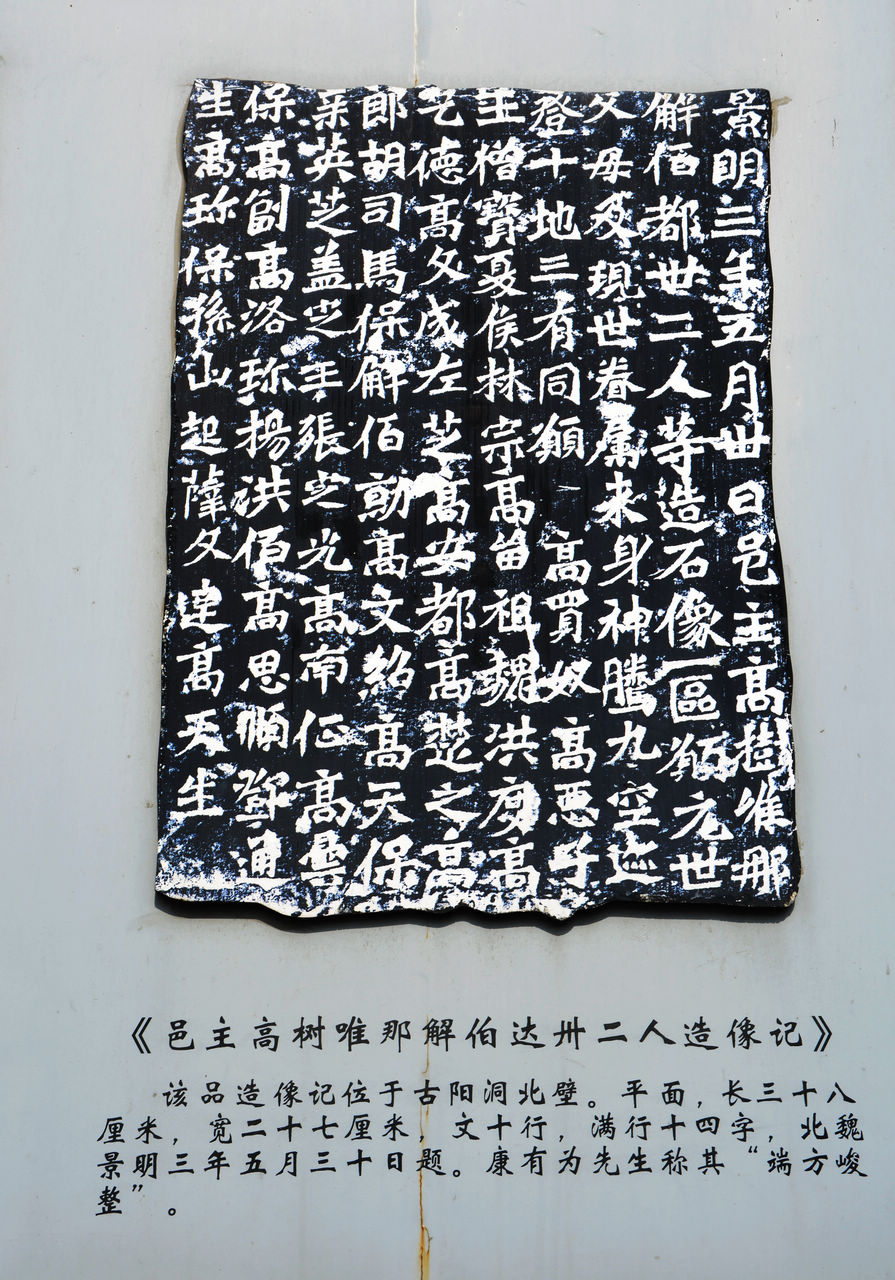 景明三年五月卅日邑主高樹唯那
解佰都卅二人等造石像一區願元世
父母及現世眷屬來身神騰九空迹
登十地三有同願 高買奴高惡子
王僧寶夏侯林宗高留祖魏洪度高
乞德高文成左芝高安都高楚之高
郎胡司馬保解佰勳高文紹高天保
英芝盖之王張之光高南征高曇
保高副高洛珎楊洪佰高思順鄧通
生高珎保孫山起薩文達高天生
《邑主高树唯那解伯达卅二人造像记》
该品造像记位于古阳洞北壁。平面,长三十八
厘米,宽二十七厘米,文十行,满行十四字,北魏
景明三年五月三十日题。康有为先生称其“端方峻
整”。